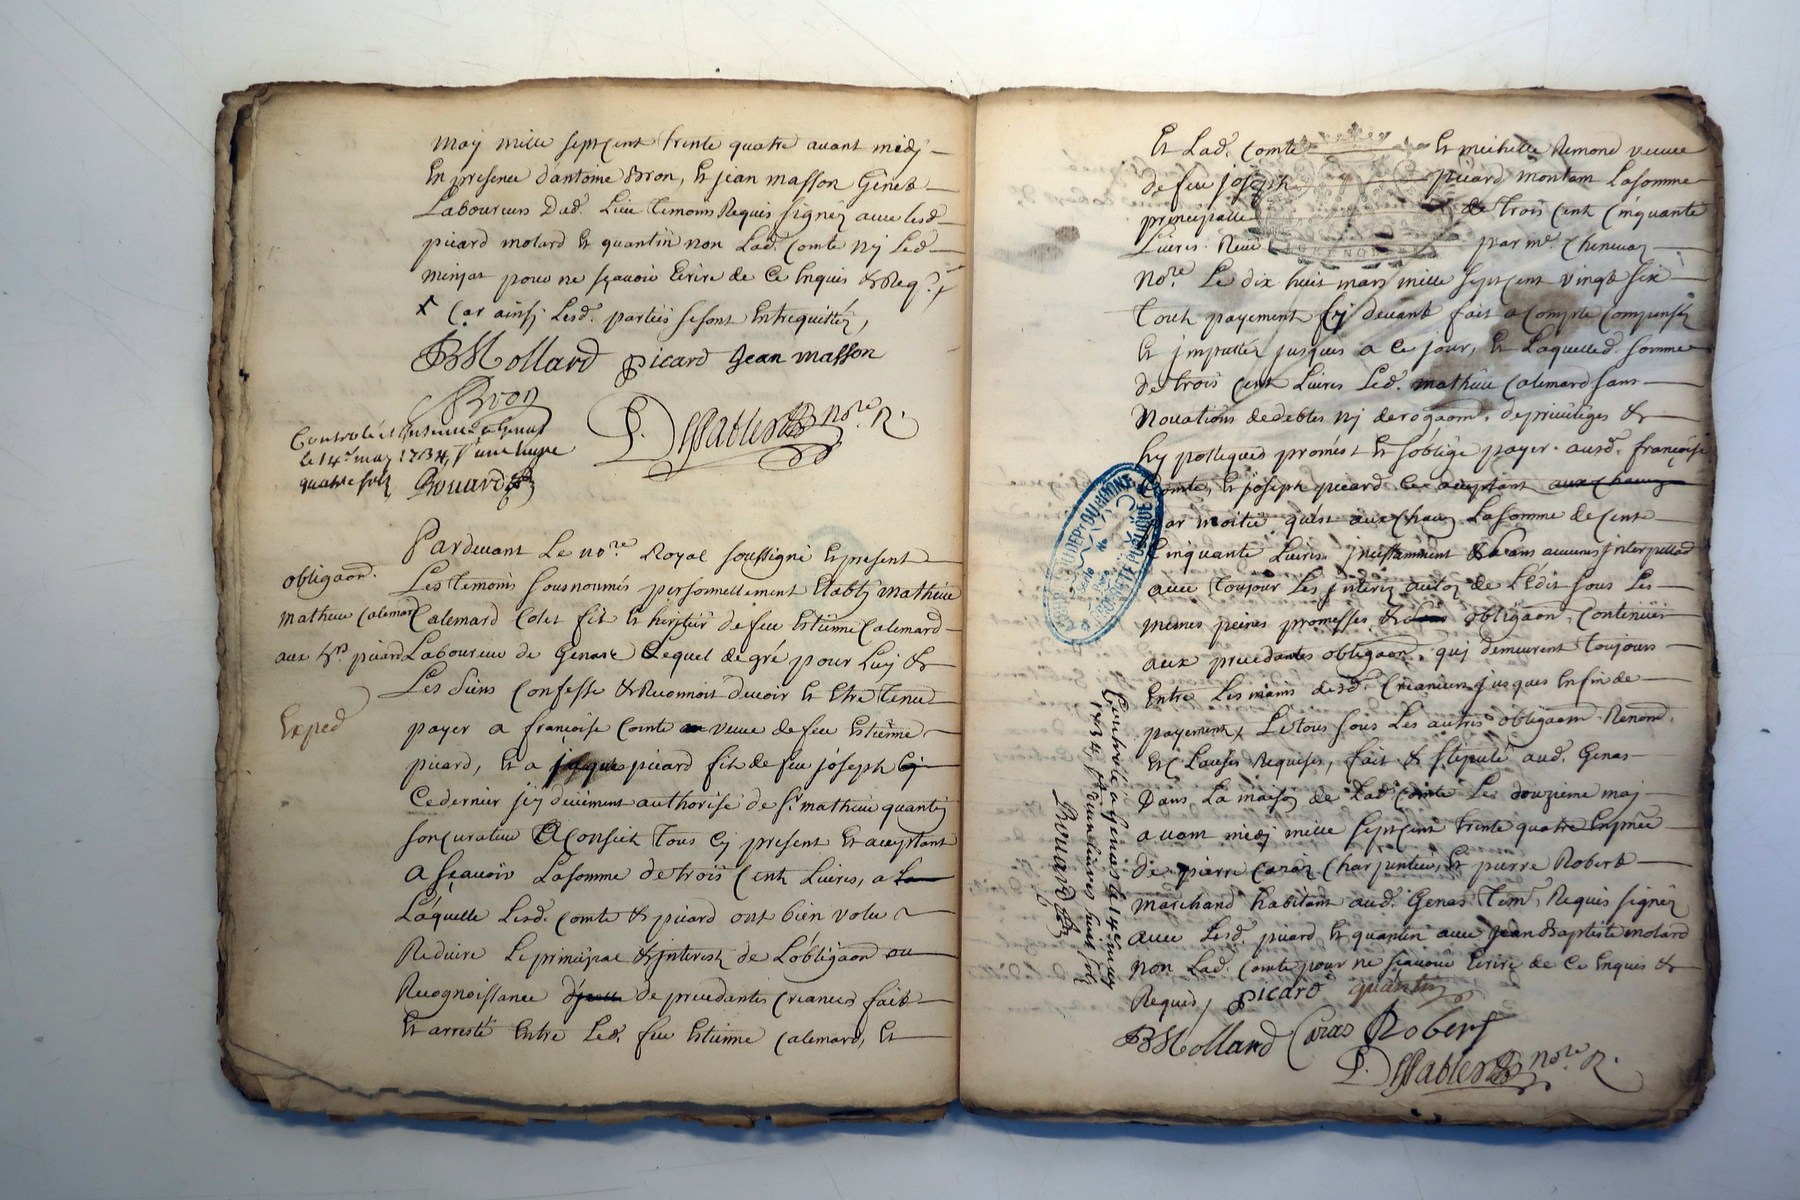 may mille sept cent trente quatre avant midy
En presence d'antoine Bron, Et jean masson Genas
Laboureurs Dud. Lieu temoins Requis signez avec lesd.
picard molard Et quantin non Lad. Comte ny Led.
pour ne sçavoir Ecrire de Ce Enquis & Req.
x Car ainsy Lesd. parties se sont Entrequittéz,
BMollard picard Jean masson
Bron
Dessables nore R.
Controlé et
le 14e may 1734,
quatre solz Bouard
Pardevant Le nore Royal soussigné Et present
obligaon.
Les temoins sousnommés personnellement Etably mathieu
mathieu Calemard
Calemard Colet fils Et heritier de feu Estienne Calemard
aux picard
Laboureur de Genas Lequel de gré pour Luy &
Les Siens Confesse & Reconnoit devoir Et Etre Tenu
Exped
payer a françoise Comte veuve de feu Estienne
picard, Et a jacques picard fils de feu joseph
Ce dernier duëment authorisé de Sr mathieu quantin
son curateur & Conseil tous Cy present Et acceptant
a sçavoir La somme de trois Cent Livres, a la
Laquelle Lesd. Comte & picard ont bien voulu
Reduire Le principal & interest de L'obligaon ou
Recognoissance de precedantes Creances fait
Et arresté Entre Led. feu Estienne Calemard, Et
Et Lad. Comte Et michelle Remond veuve
de feu joseph picard montant La somme
principalle de trois Cent Cinquante
Livres Receu par me. Chenevaz
Nore. Le dix huit mars mille sept cent vingt six
Tout payement cy devant fait a Compte Compensé
Et imputtéz jusques a Ce jour, Et Laquelle d. somme
de trois Cent Livres Led. mathieu Calemard sans
Novations de debtes ny derogaon. de privileges &
hypotteques promêt Et s'oblige payer ausd. françoise
Comte, Et joseph picard Ce acceptant aux chacun
par moitié qu'est aux chacun La somme de Cent
Cinquante Livres, incessamment & sans aucune interpellaon
avec toujour Les interêz au toz de L'Edit sous Les
mêmes peines promesses & obligaon. Contenues
aux precedantes obligaon. qui demeurent toujours
Entre Les mains desd. Creanciers jusques En fin de
payement, Le tous sous Les autres obligaon. Renon.
Et Clauses Requises, fait & stipulé aud. Genas
Dans La maison de Lad. Comte Le douzieme may
avant midy mille sept cent trente quatre En pnce
de pierre Caraz Charpentier, Et pierre Robert
marchand habitant aud. Genas Tem. Requis signéz
avec Lesd. picard Et quantin avec jean Baptiste molard
non Lad. Comte pour ne sçavoir Ecrire de Ce Enquis &
Requis, picard quantin
BMollard Caraz Robert
Dessables nore. R.
Controllé a Genas le 14e may
1734,
Bouard
GRENOBLE
DU DEPT DU RHONE
PROPRIÉTÉ PUBLIQUE